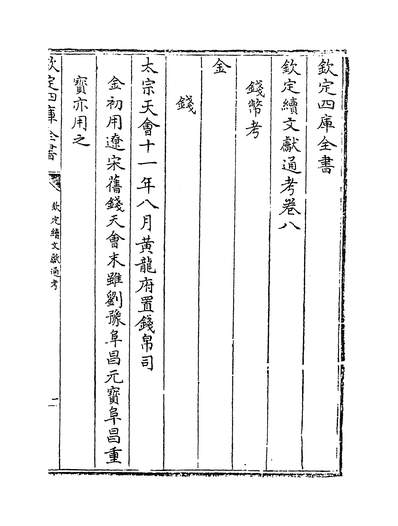 欽定四庫全書
欽定續文獻通考卷八
錢幣考
金
錢
太宗天會十一年八月黃龍府置錢帛司
金初用遼宋舊錢天會末雖劉豫阜昌元寳阜昌重
寳亦用之
欽定四庫全書
欽定續文獻通考